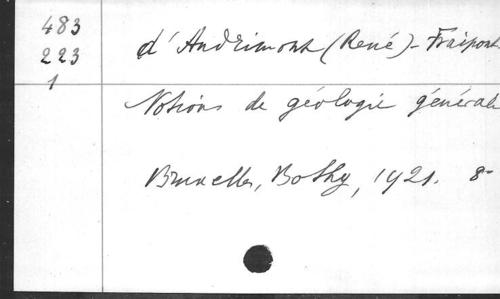 483
223
1
d'Andrimont (René) - Fraipont
Notions de géologie générale
Bruxelles, Bothy, 1921. 8°